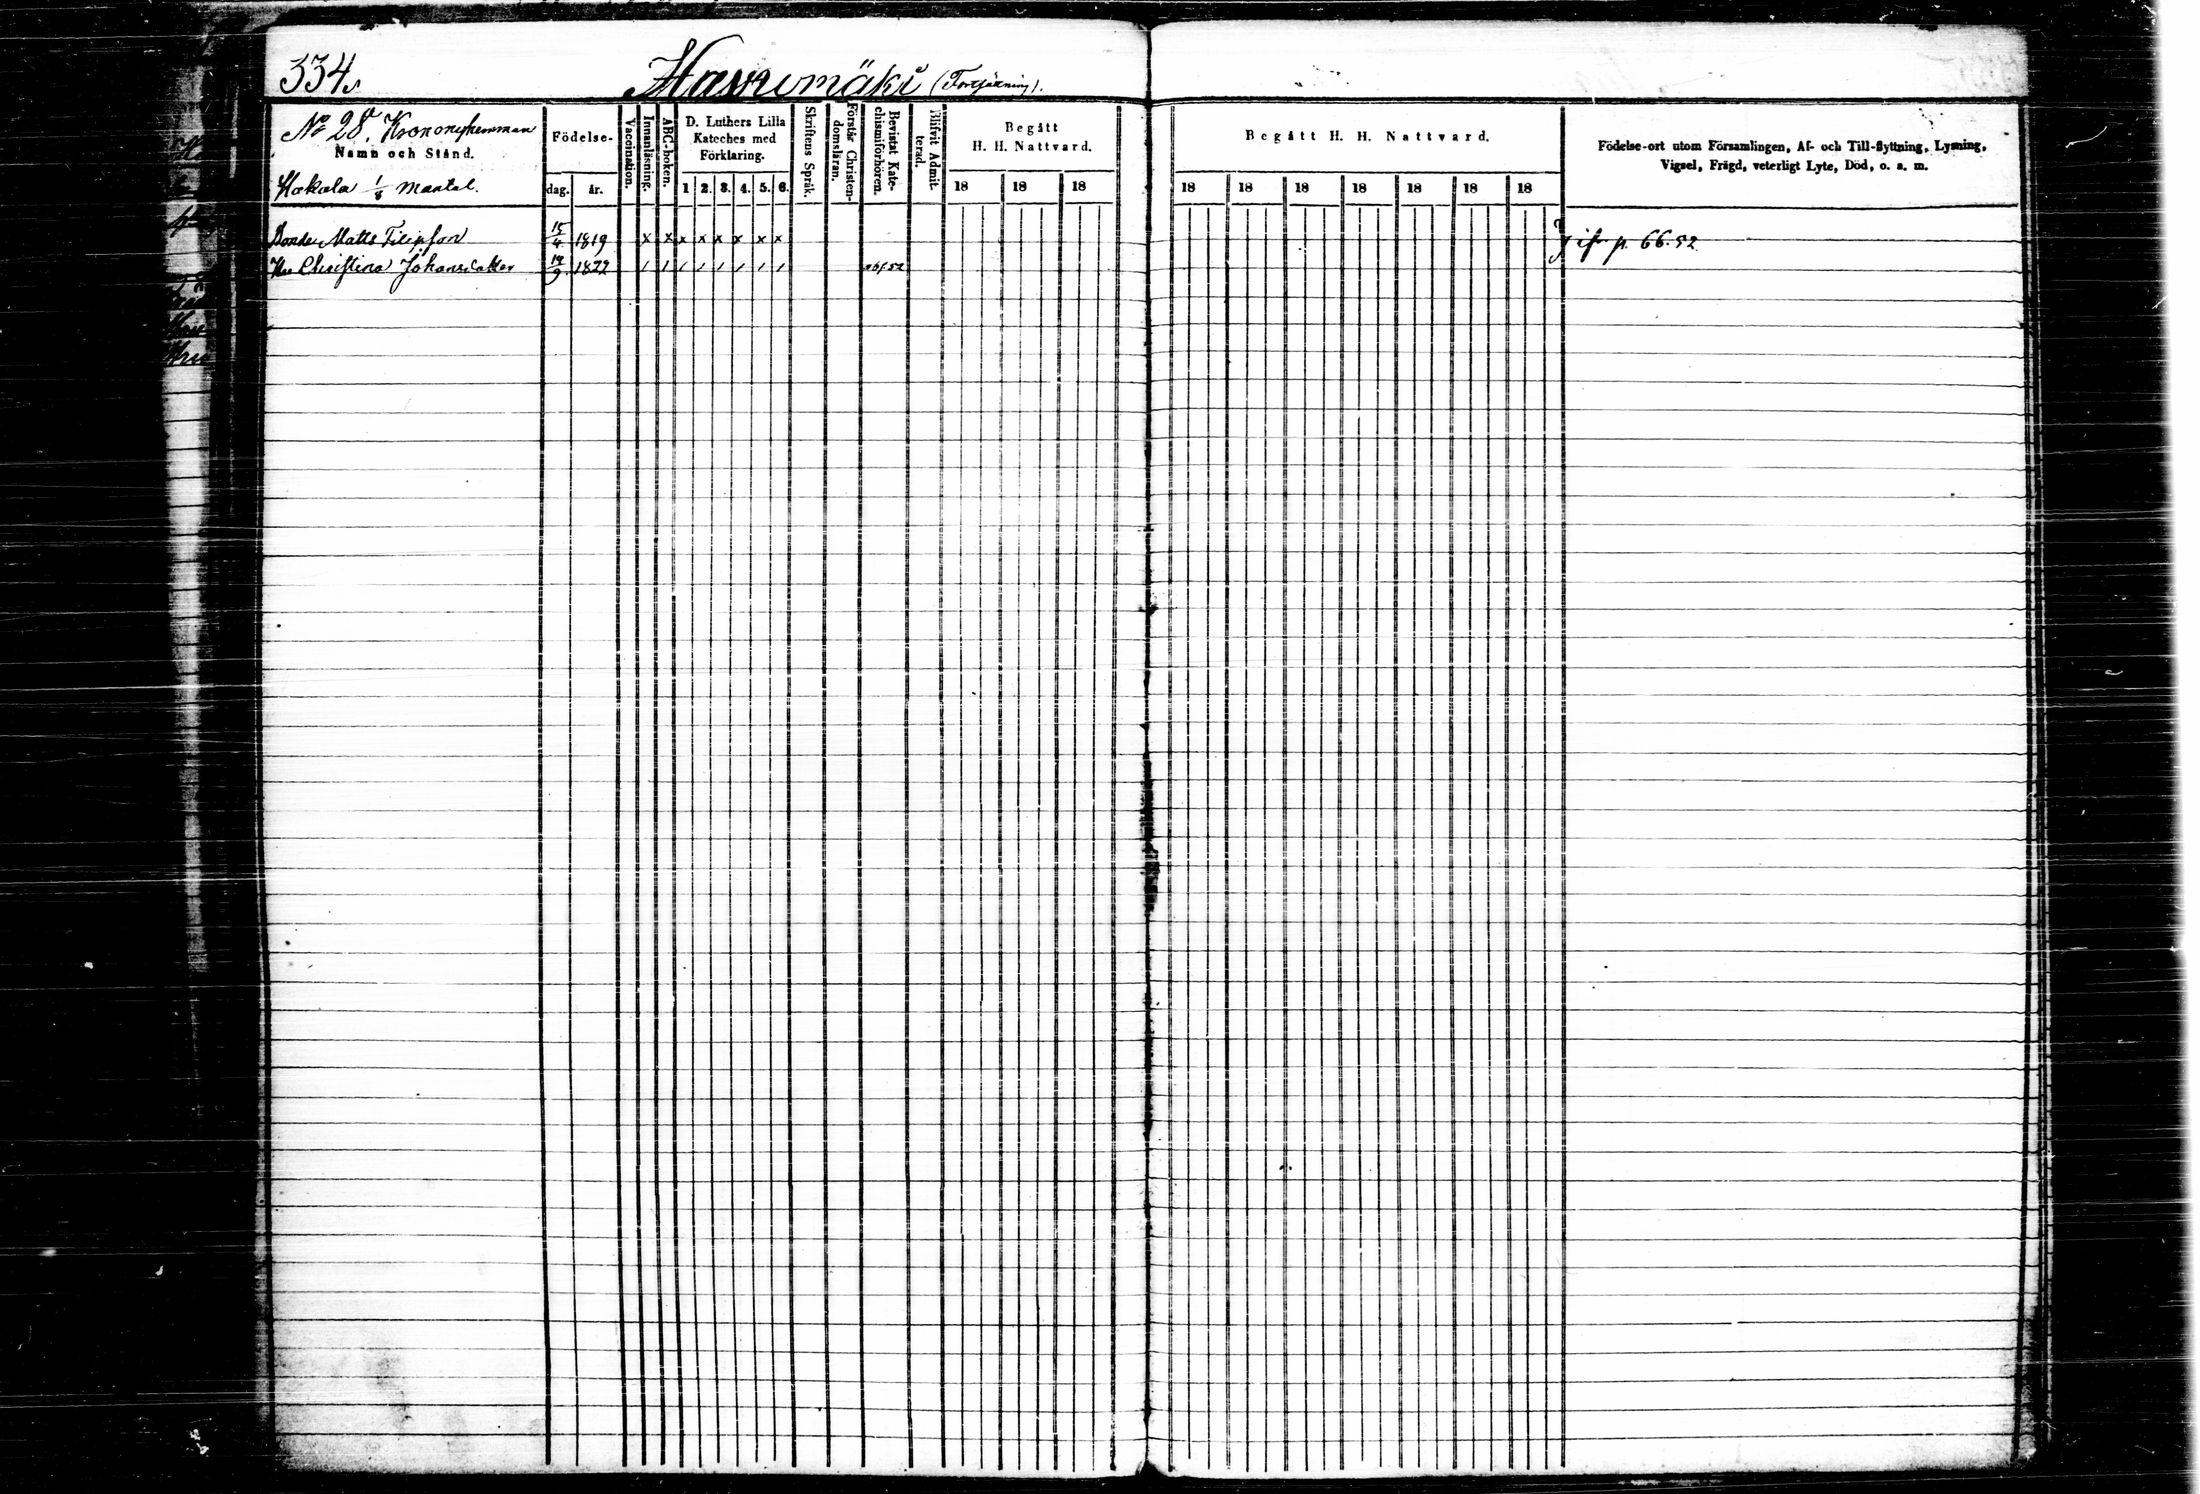 334.
(Fortsättning).
No 28. Krononyhemman
Namn och Stånd.
Hakala 1/8 Mantal.
Födelse-
dag. år.
Vaccination.
Innanläsning.
ABC-boken.
D. Luthers Lilla
Kateches med
Förklaring.
1 2. 3. 4. 5. 6.
Skriftens Språk.
Förstår Christen-
domsläran.
Bevistat Kate-
chismiförhören.
Blifvit Admit-
terad.
Begått
H. H. Nattvard.
18 18 18
Begått H. H. Nattvard.
18 18 18 18 18 18 18
Födelse-ort utom Församlingen, Af- och Till-flyttning, Lysning,
Vigsel, Frägd, veterligt Lyte, Död, o. s. m.
Bonde Matts Filipson 15/4 1819 x x x x x x x x
p. 66. 52
Hu Christina Johansdotter 19/9 1822 / / / / / / / /